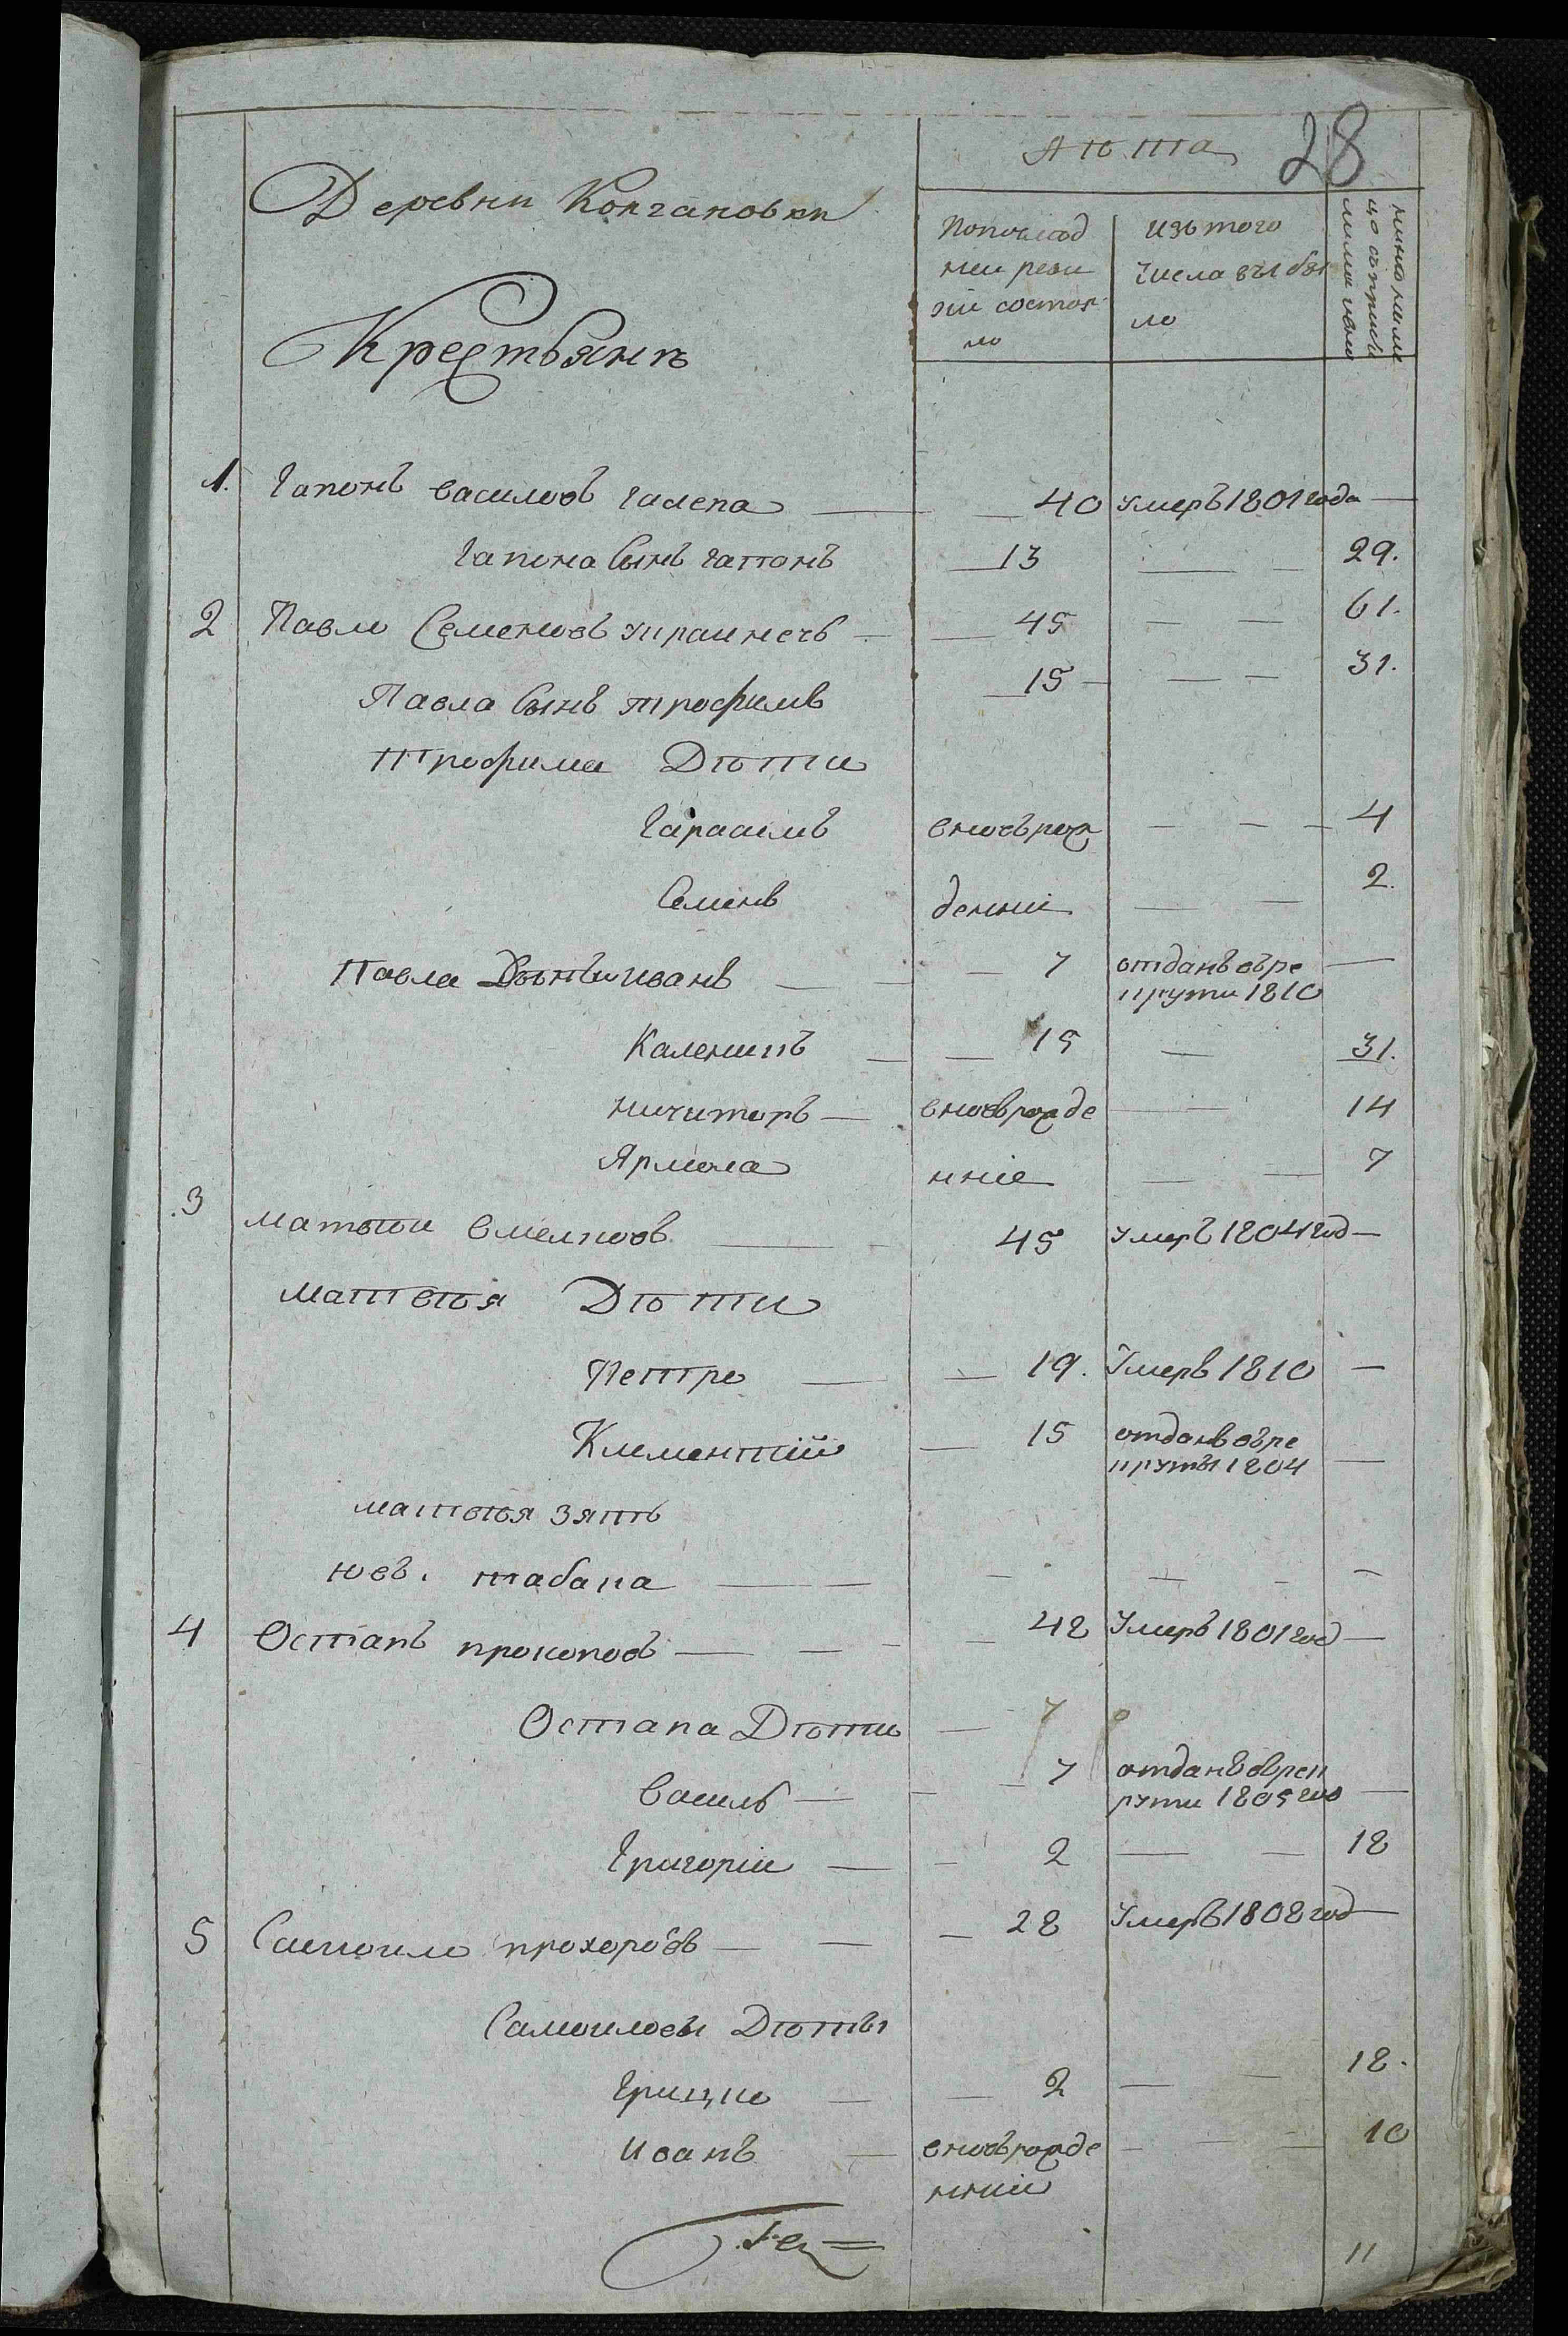 28
Лѣта
Деревни Колгановки
Крестьянъ
Попослѣд
ней реви
зіи состоя
ло
изътого
числа выбы
ло
ныне нали
цо
1. Гапонъ василіовъ галепа — 40 умеръ 1801 года —
Гапона Сынъ гапонъ 13 — 29.
2 Павло Семеновъ украинечъ — 45 — — 61.
Павла Сынъ трофимъ 15 — — 31.
Трофима Дѣти
Гарасимъ вновърож — — 4
Семенъ денни — — 2.
Павла Сынъ иванъ — 7 отданъ вре
крути 1810 —
Каленикъ — 15 — 31.
ничипоръ — вновърожде — 14
Ярмола нніе — — 7
3 матвѣи Емелновъ — 45 умеръ 1804 год —
матвѣя Дѣти
Петро — 19. Умеръ 1810 —
Климентій — 15 отданъ вре
круты 1804 —
матвѣя зять
иов. табака — — — —
4 Остапъ прокоповъ — 48 Умеръ 1801 год —
Остапа Дѣти — 7
Василь — 7 отданъ врек
рути 1805 год —
Григоріи — 2 — — 18
5 Самоило прохоровъ — 28 Умеръ 1808 год —
Самоиловы Дѣты
Грицко — 2 — — 18.
Иванъ — вновърожде — — 10
нній
11